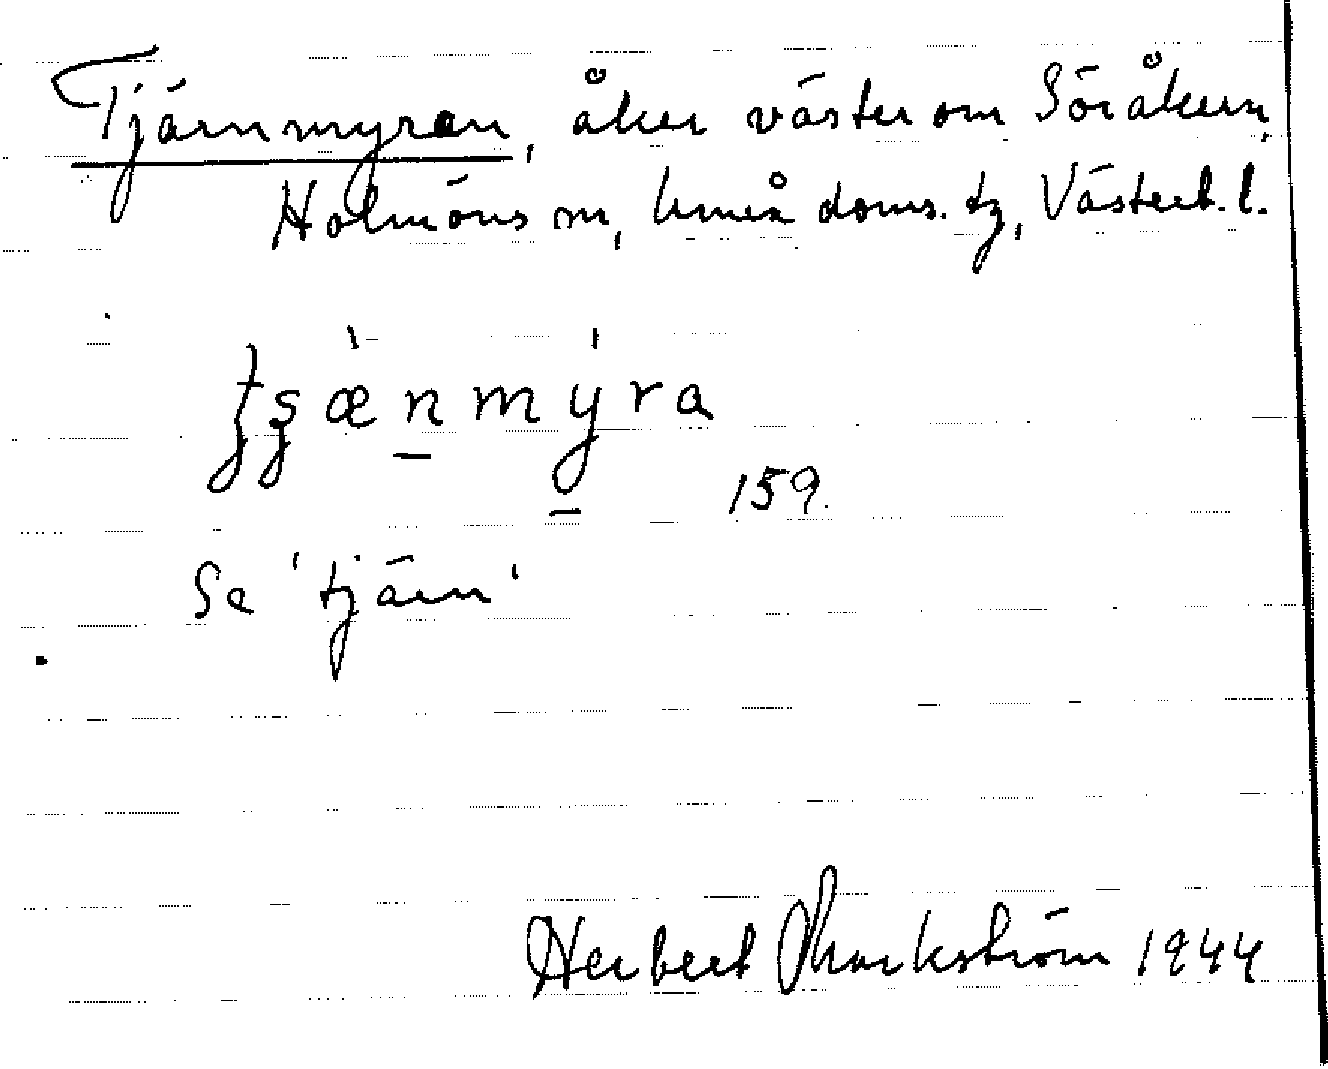 Tjärnmyran, åker väster om Söråkern,
Holmöns sn, Umeå doms. tg, Västerb. l.
tʂæ̀n̲mý̲ra
159.
Se 'tjärn'
Herbert Markström 1944